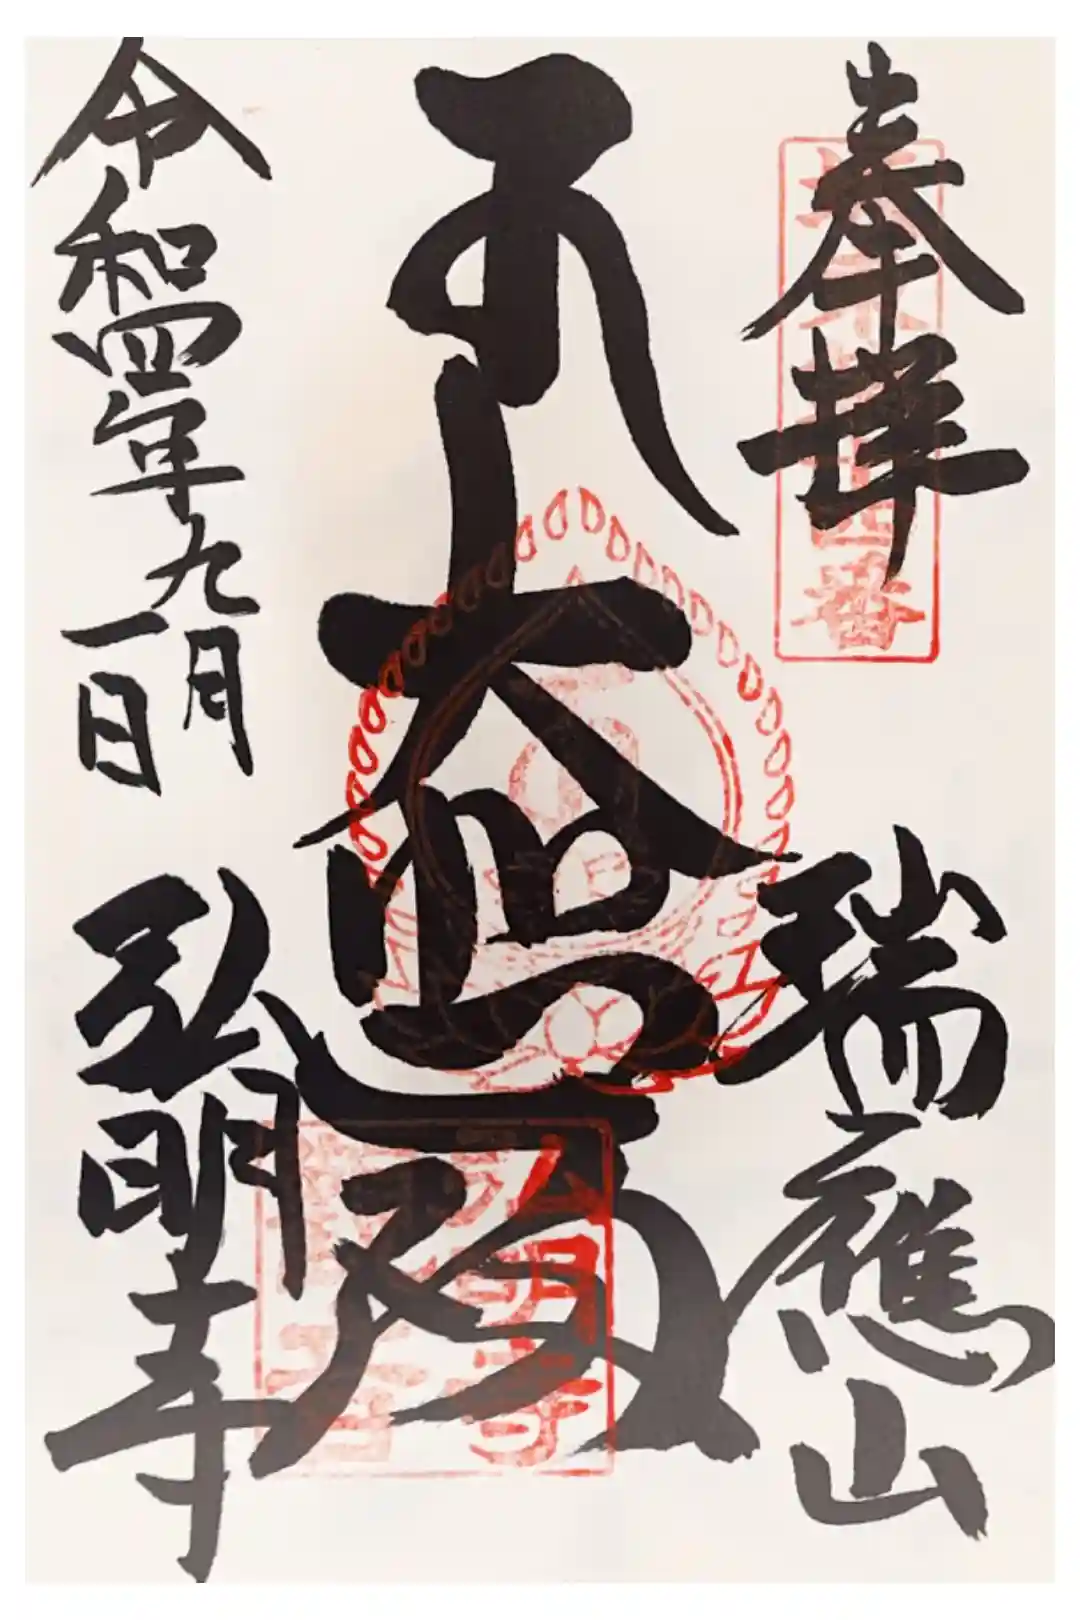 奉拝
瑞應山
大悲殿
令和四年九月
一日
弘明寺
弘明寺